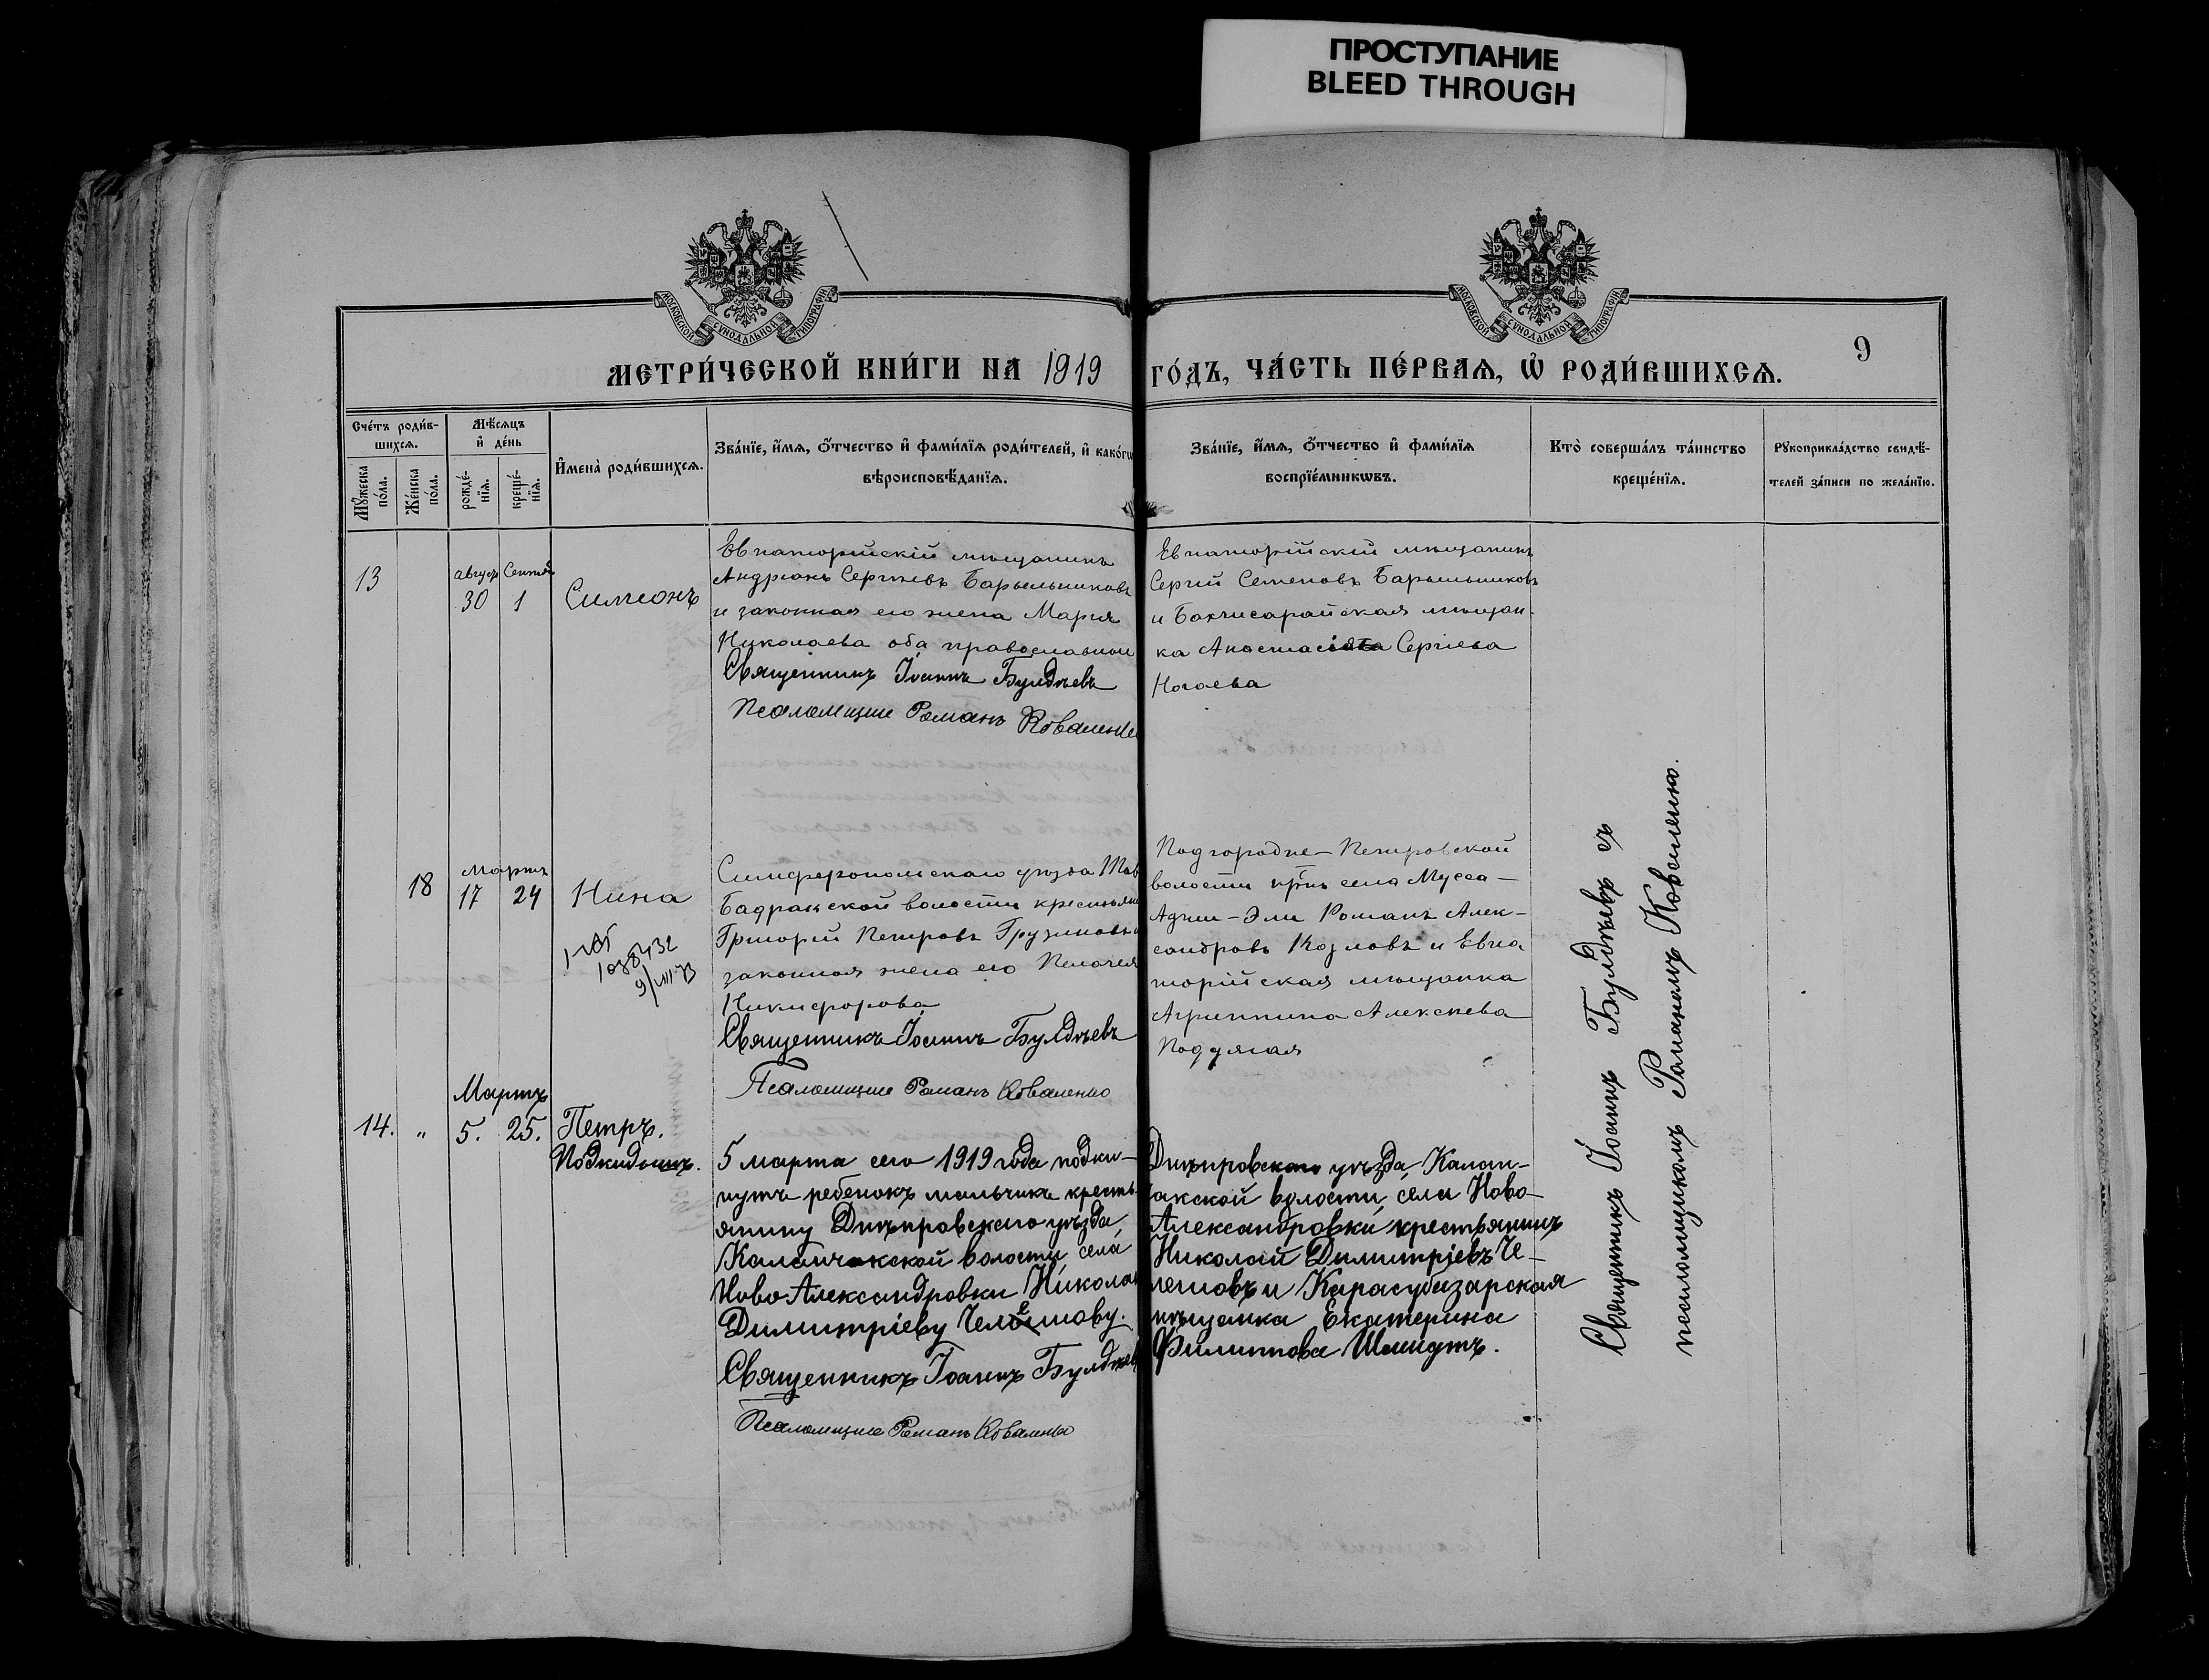 ПРОСТУПАНИЕ
BLEED THROUGH
МОСКОВСКОЙ СѴНОДАЛЬНОЙ ТИПОГРАФІИ
МОСКОВСКОЙ СѴНОДАЛЬНОЙ ТИПОГРАФІИ
9
МЕТРИ́ЧЕСКОЙ КНИ́ГИ НА 1919 ГО́ДЪ, ЧА́СТЬ ПЕ́РВАѦ, Ѡ҆ РОДИ́ВШИХСѦ.
Сче́тъ роди́в-
шихсѧ.
Мꙋ́жеска
по́ла.
Же́нска
по́ла.
Мѣ́сѧцъ
и҆ де́нь
рожде́-
нїѧ.
креще́-
нїѧ.
И҆мена̀ роди́вшихсѧ.
Зва́нїе, и҆́мѧ, ѻ҆́тчество и҆ фами́лїѧ роди́телей, и҆ како́гѡ
вѣроисповѣ́данїѧ.
Зва́нїе, и҆́мѧ, ѻ҆́тчество и҆ фами́лїѧ
воспрїе́мникѡвъ.
Кто̀ соверша́лъ та́инство
креще́нїѧ.
Рꙋкоприкла́дство свидѣ́-
телей за́писи по жела́нїю.
13
август Сентяб
30 1
Симеонъ
Евпаторійскій мѣщанинъ
Андріанъ Сергѣевъ Барыльниковъ
и законная его жена Марія
Николаева оба православнои
Священникъ Іоаннъ Булдѣевъ
Псаломщик Романъ Коваленко
Евпаторійскій мѣщанинъ
Сергій Семеновъ Барыльниковъ
и Бахчисарайская мѣщан-
ка Анастасія Сергіева
Ногаева
18
мартъ
17 24
Нина
Симферопольскаго уѣзда Тав
Бадракской волости крестьянин
Григорій Петровъ Грузиновъ и
законная жена его Пелагея
Никифорова
Священникъ Іоаннъ Булдѣевъ
Псаломщик Романъ Коваленко
Подгородне-Петровской
волости крнъ села Мусса-
Аджи-Эли Романъ Алек-
сандровъ Козловъ и Евпа
торійская мѣщанка
Агриппина Алексѣева
14. „
Мартъ
5. 25.
Петръ.
Подкидышъ.
5 марта сего 1919 года подки-
нутъ ребенокъ мальчикъ кресть-
янину Днѣпровскаго уѣзда,
Каланчакской волости, села
Ново Александровки Николаю
Димитріеву Челешову.
Священникъ Іоаннъ Булдѣевъ
Псаломщик Романъ Коваленко
Днѣпровскаго уѣзда, Калан-
чакской волости, села Ново-
Александровки крестьянинъ
Николай Димитріевъ Че-
лешовъ и Карасубазарская
мѣщанка Екатерина
Филиппова Шмидтъ.
Священникъ Іоаннъ Булдѣевъ съ
псаломщикомъ Романомъ Коваленко.